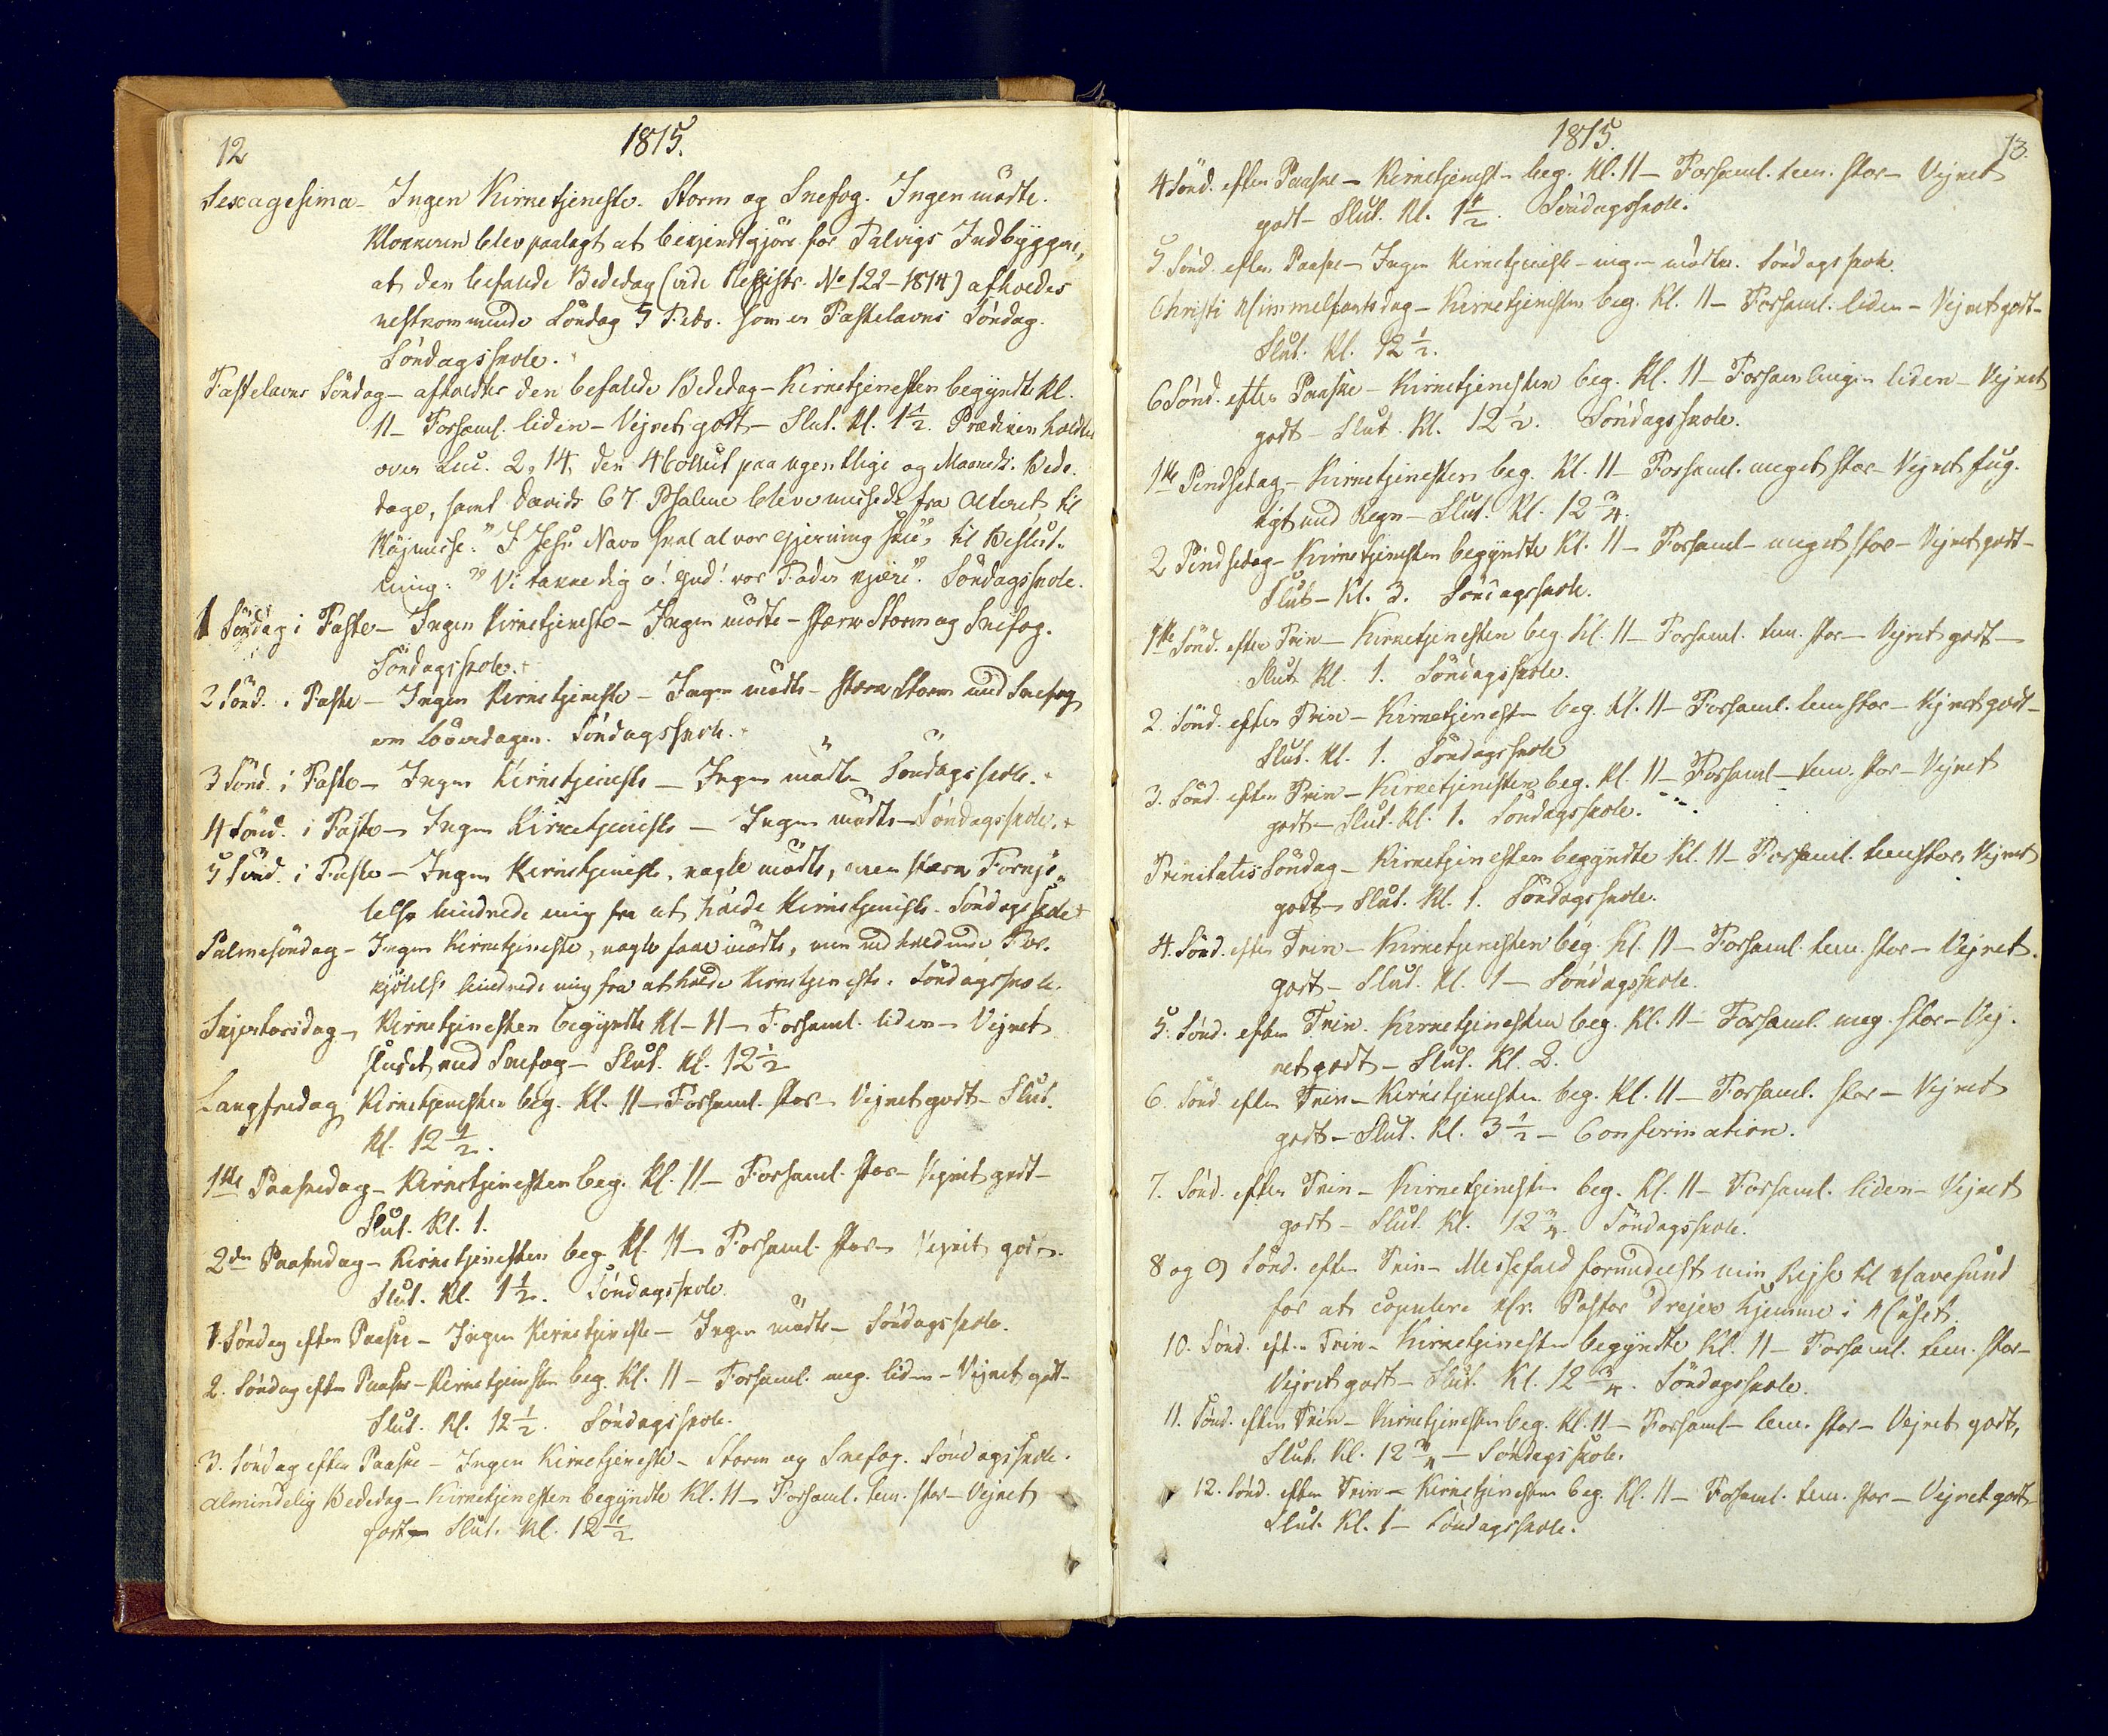 12
1815.
Sexagesima - Ingen Kirketjeneste. Storm og Snefog. Ingen mødte.
Klokkeren blev paalagt at bekjendtgjöre for Talvigs Indbyggere,
at den befalede Bededag (vide Registr. No 122-1814) afholdes
nestkommende Söndag 5 Febr. som er Fastelavns Söndag.
Söndagsskole.
Fastelavns Söndag - afholdtes den befalede Bededag - Kirketjenesten begyndte Kl.
11 - Forsaml. liden - Vejret godt - Slut. Kl. 1 1/2. Prædiken holdtes
over Luc. 2, 14, den 4 Collect paa ugentlige og Maanedl. Bede-
dage, samt Davids 67 Psalme bleve messede fra Alteret, til
Höjmesse: "I Jesu Navn skal al vor Gjerning skee", til Beslut-
ning: "Vi takke dig o! Gud! vor Fader kjære". Söndagsskole.
1 Söndag i Faste - Ingen Kirketjeneste - Ingen mödte - stærk Storm og Snefog.
Söndagsskole.
2 Sönd. i Faste - Ingen Kirketjeneste - Ingen mödte - stærk Storm med Snefog
om Löverdagen. Söndagsskole.
3 Sönd. i Faste - Ingen Kirketjeneste - Ingen mödte Söndagsskole.
4 Sönd. i Faste - Ingen Kirketjeneste - Ingen mödte - Söndagsskole.
5 Sönd. i Faste - Ingen Kirketjeneste, nogle mödte, men stærk Forkjö-
lelse hindrede mig fra at holde Kirketjeneste. Söndagsskole
Palmesöndag - Ingen Kirketjeneste, nogle faae mödte, men vedholdende For-
kjölelse hindrede mig fra at holde Kirketjeneste. Söndagsskole.
Skjertorsdag - Kirketjenesten begyndte Kl - 11 - Forsaml. liden - Vejret
sludet med Snefog - Slut. Kl. 12 1/2
Langfredag Kirketjenesten beg. Kl. 11 - Forsaml. stor - Vejret godt - Slut.
Kl. 12 1/2.
1ste Paaskedag - Kirketjenesten beg. Kl. 11 - Forsaml. stor - Vejret godt -
Slut. Kl. 1.
2den Paaskedag - Kirketjenesten beg. Kl. 11 - Forsaml. stor - Vejret godt.
Slut. Kl. 1 1/2. Söndagsskole.
1. Söndag efter Paaske - Ingen Kirketjeneste - Ingen mödte - Söndagsskole.
2. Söndag efter Paaske - Kirketjenesten beg. Kl. 11 - Forsaml. meg. liden - Vejret godt -
Slut. Kl. 12 1/2. Söndagsskole.
3. Söndag efter Paaske - Ingen Kirketjeneste - Storm og Snefog. Söndagsskole.
Almindelig Bededag - Kirketjenesten begyndte Kl. 11 - Forsaml. tem. stor - Vejret
godt - Slut. Kl. 12 1/2
1815.
13.
4 Sönd. efter Paaske - Kirketjenesten beg. Kl. 11 - Forsaml. tem. stor - Vejret
godt - Slut. Kl. 1 1/2. Söndagsskole.
5. Sönd. efter Paaske - Ingen Kirketjeneste - ingen mödte. Söndagsskole.
Christi Himmelfartsdag - Kirketjenesten beg. Kl. 11 - Forsaml. liden - Vejret godt -
Slut. Kl. 12 1/2.
6 Sönd. efter Paaske - Kirketjenesten beg. Kl. 11 - Forsamlingen liden - Vejret
godt - Slut. Kl. 12 1/2. Söndagsskole.
1ste Pindsedag - Kirketjenesten beg. Kl. 11 - Forsaml. meget stor - Vejret fug-
tigt med Regn - Slut. Kl. 12 3/4.
2 Pindsedag - Kirketjenesten begyndte Kl. 11 - Forsaml - meget stor - Vejret godt -
Slut - Kl. 3. Söndagsskole.
1ste Sönd. efter Trin - Kirketjenesten beg. Kl. 11 - Forsaml. tem. stor - Vejret godt -
Slut. Kl. 1. Söndagsskole.
2. Sönd. efter Trin - Kirketjenesten beg. Kl. 11 - Forsaml. tem stor - Vejret godt -
Slut. Kl. 1. Söndagsskole
3. Sönd. efter Trin - Kirketjenesten beg. Kl. 11 - Forsaml - tem. stor - Vejret
godt - Slut. Kl. 1. Söndagsskole.
Trinitatis Söndag - Kirketjenesten begyndte Kl. 11 - Forsaml. tem stor, Vejret
godt - Slut. Kl. 1. Söndagsskole.
4. Sönd. efter Trin - Kirketjenesten beg. Kl. 11 - Forsaml. tem. stor - Vejret.
godt - Slut. Kl. 1 - Söndagsskole.
5. Sönd. efter Trin. Kirketjenesten beg. Kl. 11 - Forsaml. meg. stor - Vej-
ret godt - Slut. Kl. 2.
6. Sönd efter Trin - Kirketjenesten beg. Kl. 11 - Forsaml. stor - Vejret
godt - Slut. Kl. 3 1/2 - Confirmation.
7. Sönd. efter Trin - Kirketjenesten beg. Kl. 11 - Forsaml. liden - Vejret
godt - Slut. Kl. 12 3/4. Söndagsskole.
8 og 9 Sönd. efter Trin - Messefald formedelst min Rejse til Havesund
for at copulere Hr. Pastor Drejer hjemme i Huset.
10. Sönd. efter Trin - Kirketjenesten begyndte Kl. 11 - Forsaml. tem. stor -
Vejret godt - Slut. Kl. 12 3/4. Söndagsskole.
11. Sönd. efter Trin - Kirketjenesten beg. Kl. 11 - Forsaml - tem. stor - Vejret godt,
Slut. Kl. 12 3/4 - Söndagsskole.
12. Sönd. efter Trin - Kirketjenesten beg. Kl. 11 - Forsaml. tem. stor - Vejret godt -
Slut. Kl. 1 - Söndagsskole.